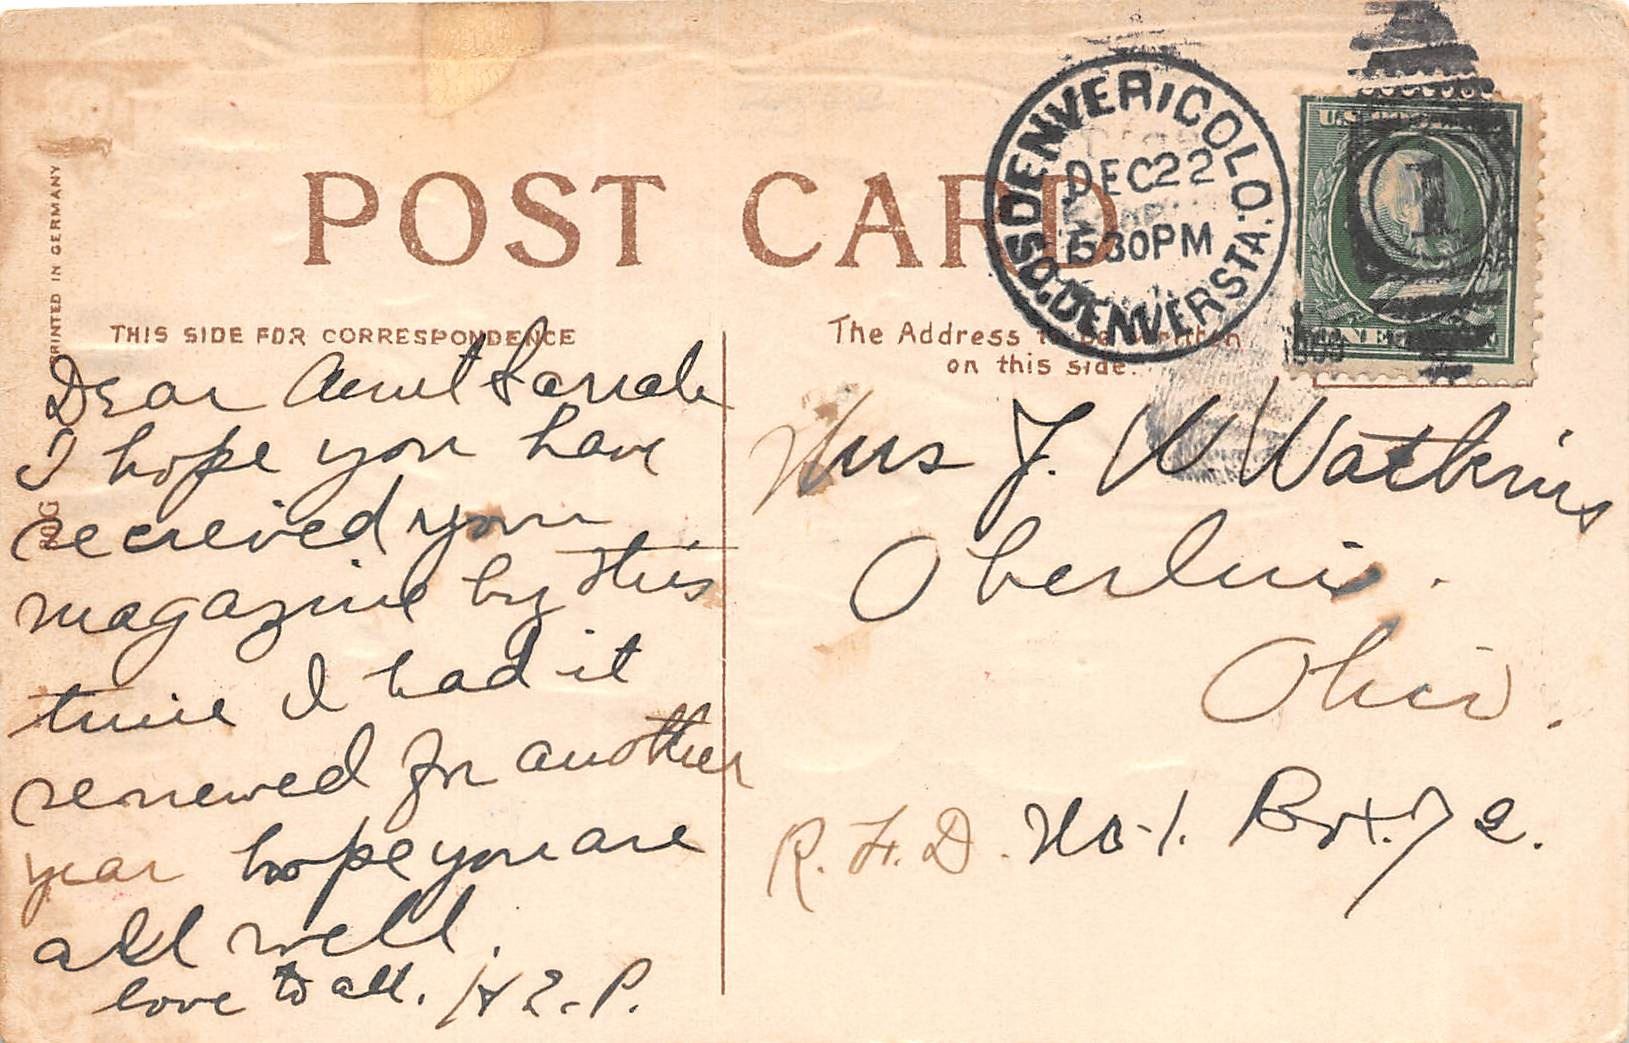 POST CARD
DENVER, COLO.
DEC 22
530PM
SO. DENVER STA.
PRINTED IN GERMANY
THIS SIDE FOR CORRESPONDENCE
The Address to be written
on this side.
Dear Aunt Sarah
I hope you have
recieved your
magazine by this
time I had it
renewed for another
year hope you are
all well.
love to all. H E. P.
Mrs J. W. Watkins
Oberlin.
Ohio.
R. F. D. No. 1. Box. 72.